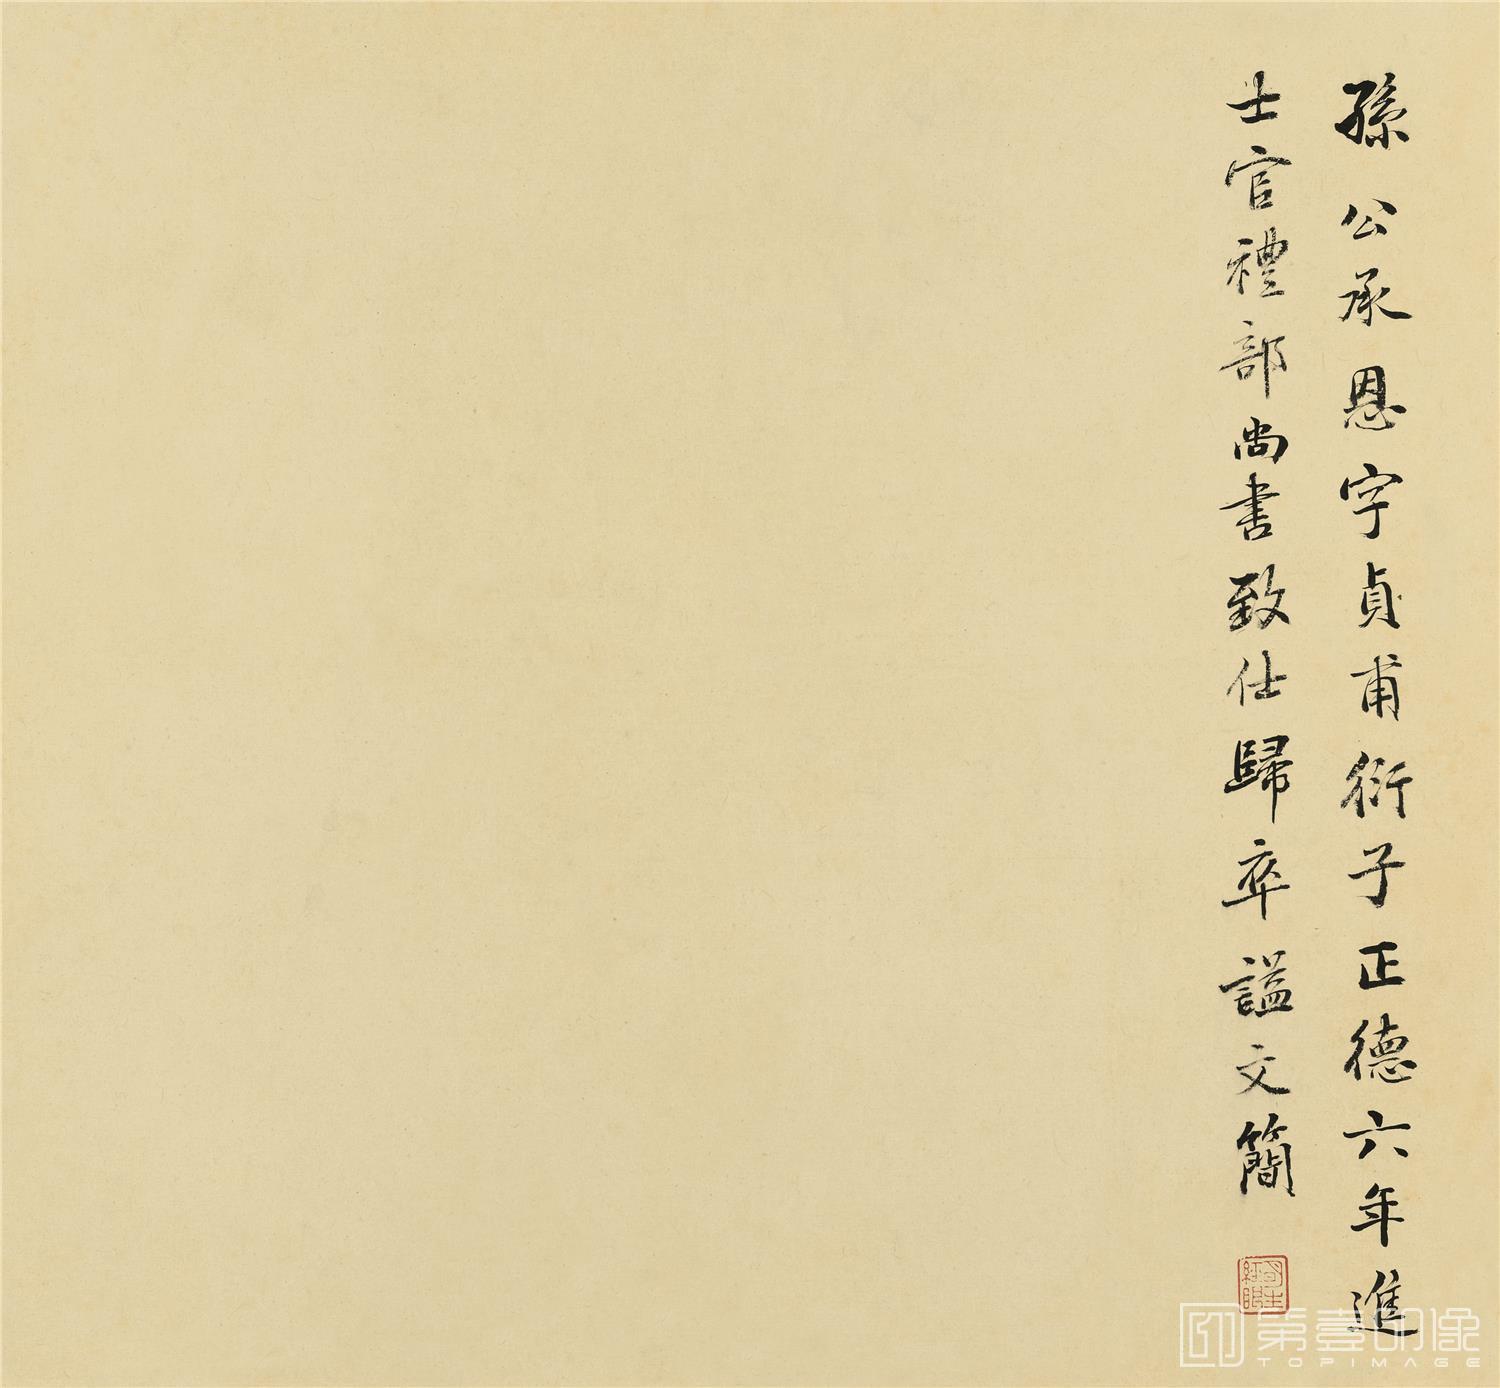 孫公承恩字貞甫衍子正德六年進
士官禮部尚書致仕歸卒謚文簡
第壹印像
TOPIMAGE